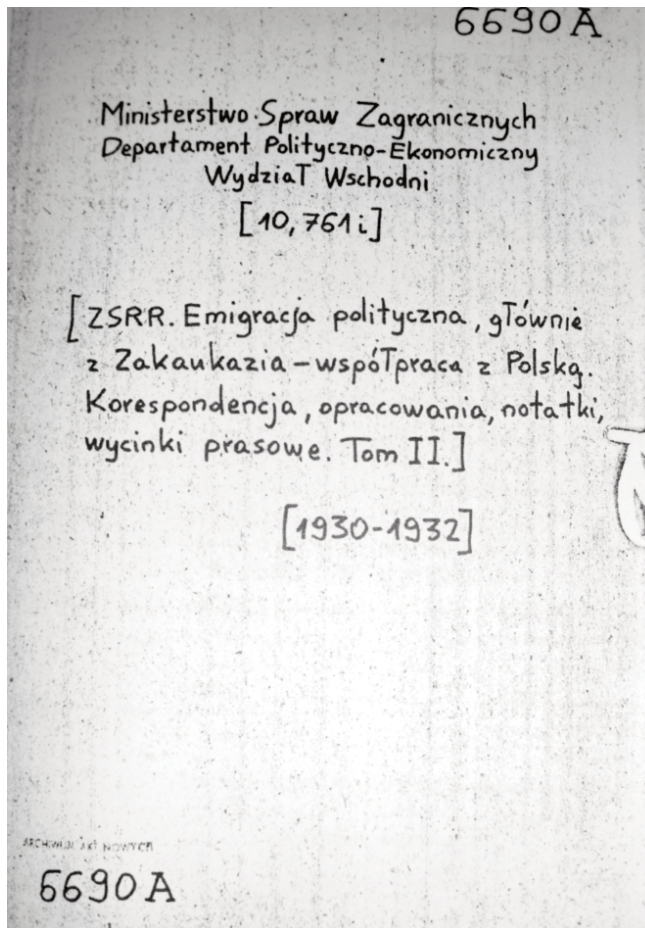 6690 A
Ministerstwo Spraw Zagranicznych
Departament Polityczno-Ekonomiczny
Wydział Wschodni
[10,761 i]
[ZSRR. Emigracja polityczna, głównie
z Zakaukazia – współpraca z Polską.
Korespondencja, opracowania, notatki,
wycinki prasowe. Tom II.]
[1930-1932]
ARCHIWUM AKT NOWYCH
6690 A